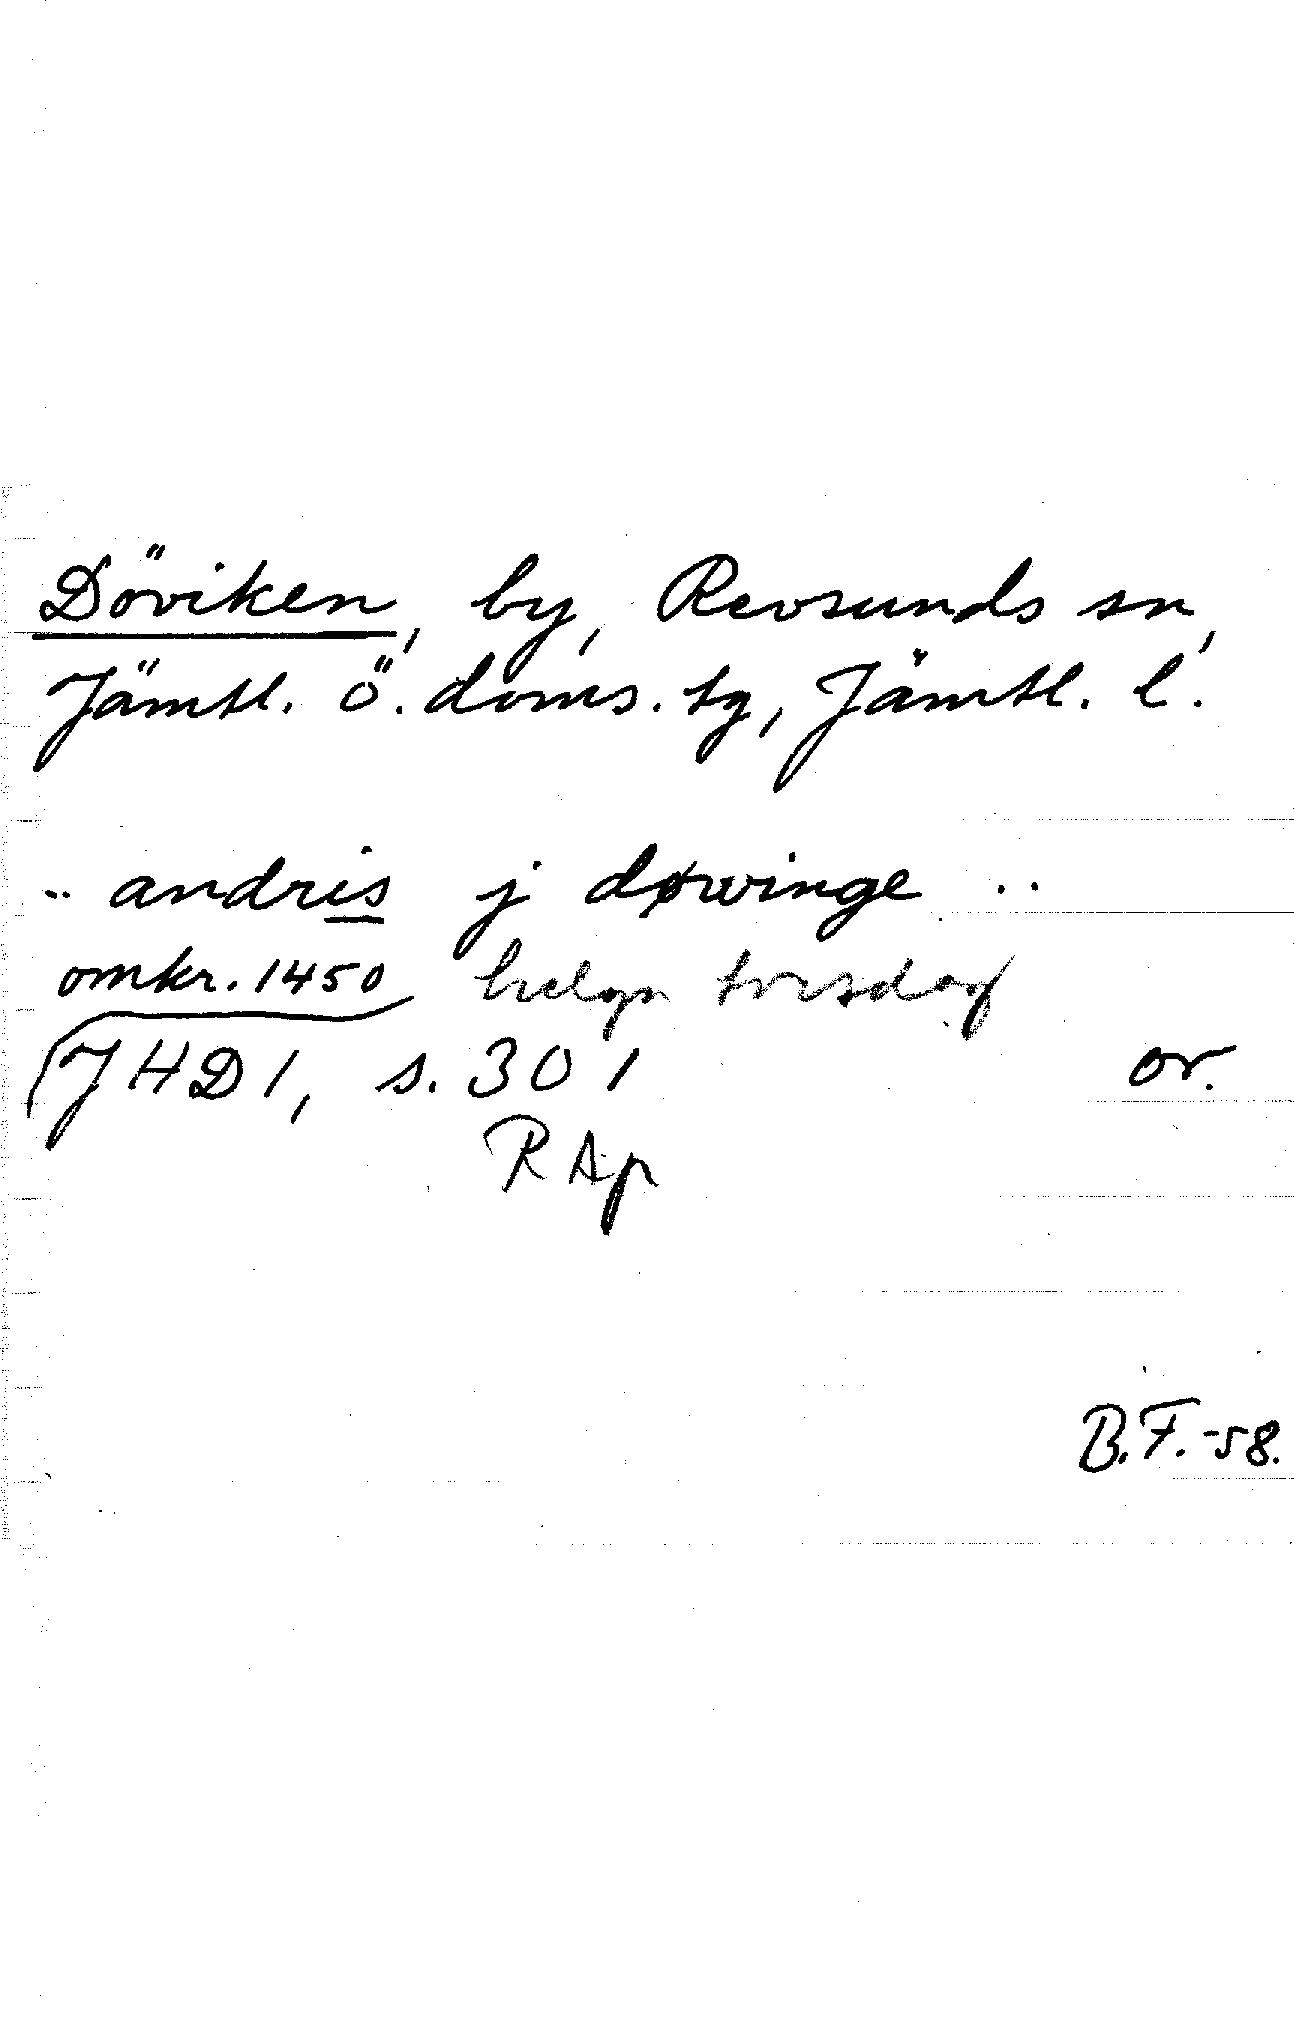 Döviken, by, Revsunds sn,
Jämtl. ö. doms. tg, Jämtl. l.
.. andris j døwinge ..
omkr. 1450 helga torsdag
JHD 1, s. 301 or.
RAp
B.F.-58.